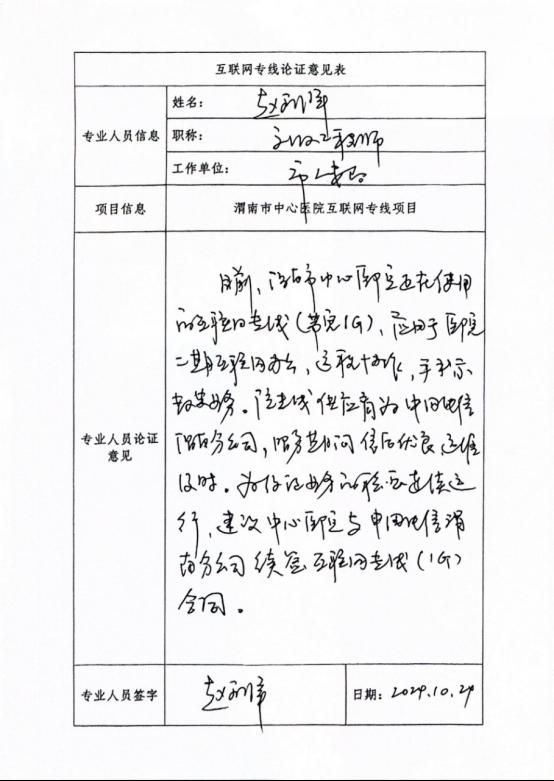 互联网专线论证意见表
专业人员信息
姓名：赵
职称：工程师
工作单位：市
项目信息
渭南市中心医院互联网专线项目
专业人员论证
意见
目前，渭南市中心医院正在使用
的互联网专线（带宽1G），应用于医院
二期互联网办公，远程
业务。该专线供应商为中国电信
渭南分公司，服务期间信号优良，运维
及时。为保证业务的稳定连续运
行，建议中心医院与中国电信渭
南分公司续签互联网专线（1G）
合同。
专业人员签字
赵
日期：2024.10.24